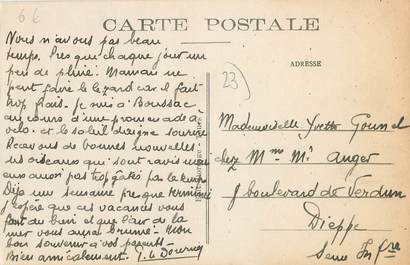 6k
CARTE POSTALE
Nous n'avons pas beau
temps. Presque chaque jour un
peu de pluie. Maman ne
peut faire le lezard car il fait
trop frais. Je suis à Boussac
au cours d'une promenade à
velo. et le soleil daigne sourire
Recevons de bonnes nouvelles
les oiseaux qui sont ravis mais
aussi pas trop gâtés par le temps
Déjà une semaine presque terminée
J'espère que ces vacances vous
font du bien et que l'air de la
mer vous aura brunie. Mon
bon souvenir à vos parents.
Bien amicalement.
ADRESSE
23
Mademoiselle Yvette
chez Mme Mr Anger
boulevard de Verdun
Dieppe
Seine Infre